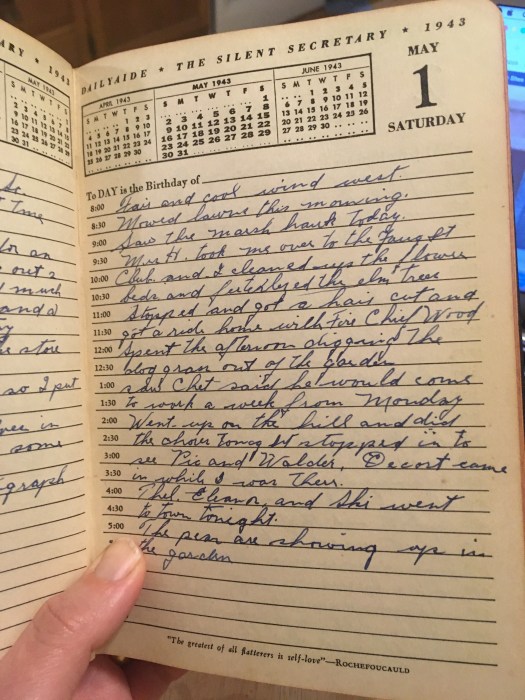 ARY ★ 1943
MAY 1943
S M T W T F S
DAILYAIDE ★ THE SILENT SECRETARY ★ 1943
APRIL 1943
S M T W T F S
1 2 3
4 5 6 7 8 9 10
11 12 13 14 15 16 17
18 19 20 21 22 23 24
25 26 27 28 29 30
MAY 1943
S M T W T F S
1
2 3 4 5 6 7 8
9 10 11 12 13 14 15
16 17 18 19 20 21 22
23 24 25 26 27 28 29
30 31
JUNE 1943
S M T W T F S
1 2 3 4 5
6 7 8 9 10 11 12
13 14 15 16 17 18 19
20 21 22 23 24 25 26
27 28 29 30
MAY
1
SATURDAY
To DAY is the Birthday of
8:00 Fair and cool wind west.
8:30 Mowed lawns this morning.
9:00 Saw the marsh hawk today.
9:30 Mrs H. took me over to the
10:00 Club and I cleaned up the flower
10:30 beds and the elm trees
11:00 Stopped and got a hair cut and
11:30 got a ride home with Fire Chief Wood
12:00 Spent the afternoon digging The
12:30 grass out of the garden
1:00 Chet said he would come
1:30 to work a week from Monday
2:00 Went up on the hill and did
2:30 the chores stopped in to
3:00 see Vic and came
3:30 in while I was there.
4:00 Thel, Eleanor, and Ski went
4:30 to town tonight.
5:00 The peas are showing up in
the garden
"The greatest of all flatterers is self-love"—ROCHEFOUCAULD
out
much
and a
store
so I put
in
some
graph